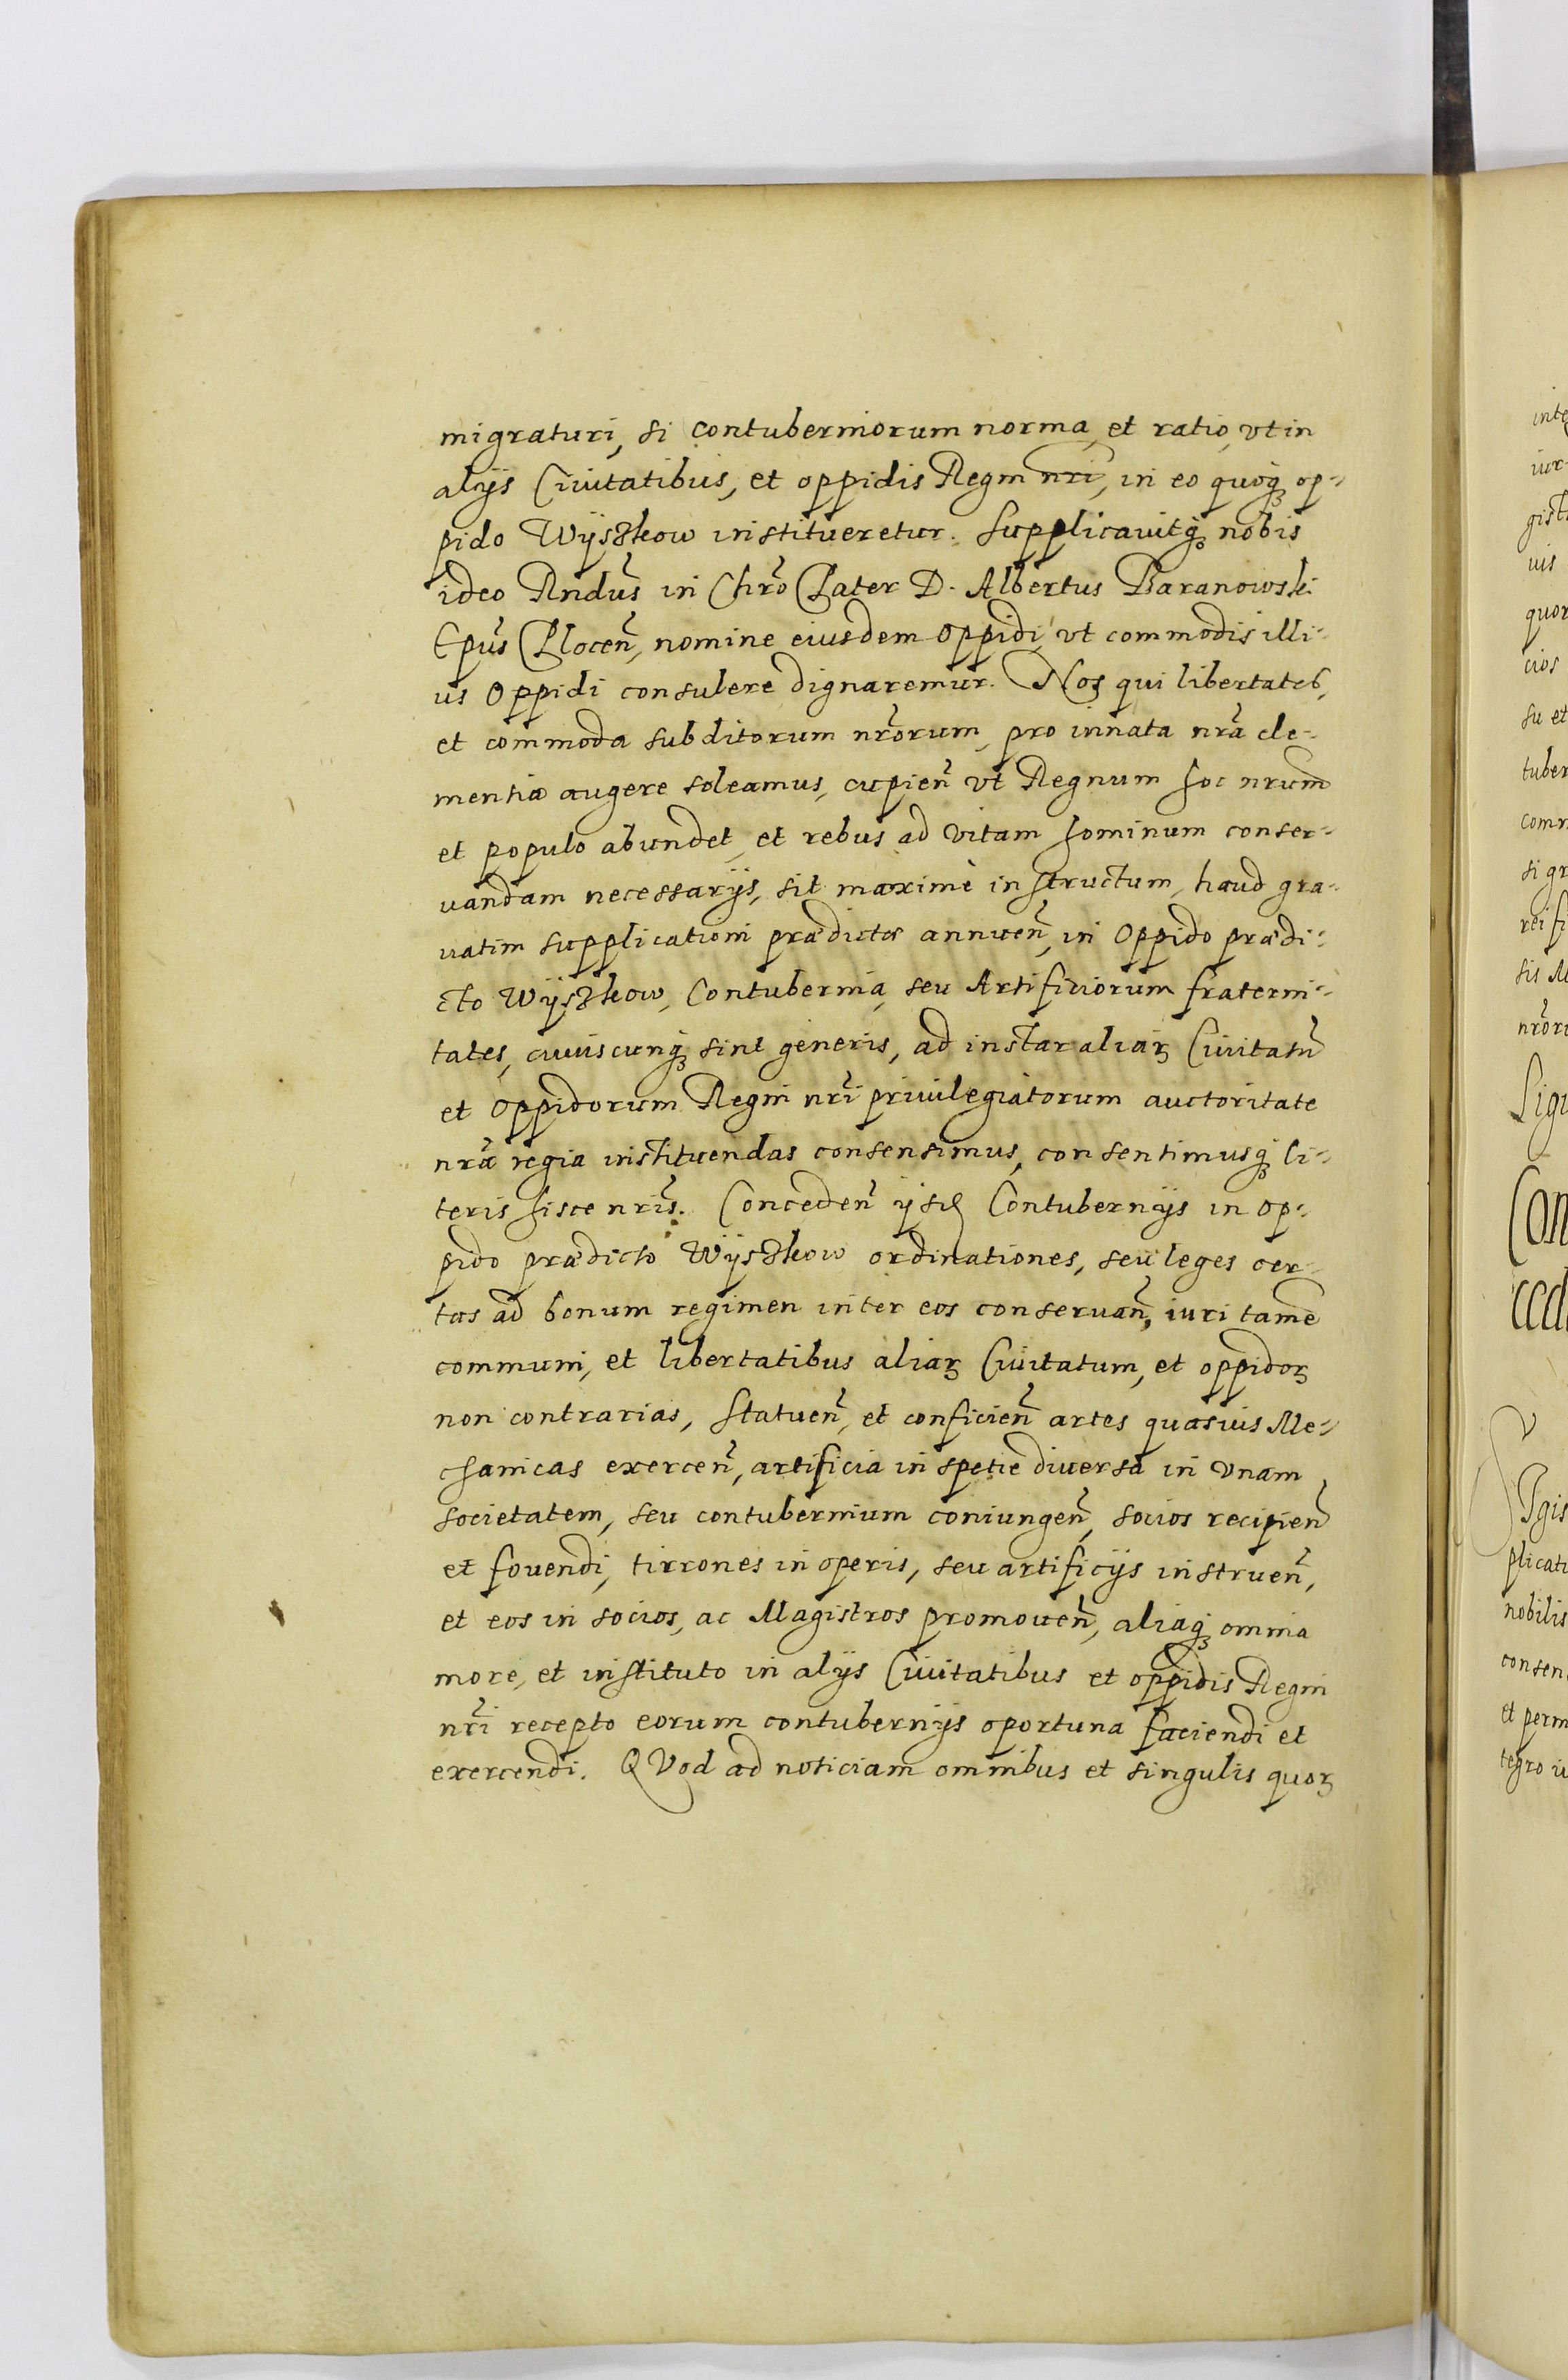 migraturi, si contuberniorum norma, et ratio, vt in
alijs Ciuitatibus, et oppidis Regni nr̃i, in eo quoqꝫ op-
pido Wÿszkow institueretur. Supplicauitqꝫ nobis
ideo Rndus̃ in Chrõ Pater D. Albertus Baranowski
Epus̃ Plocen̄, nomine eiusdem oppidi, vt commodis illi-
us oppidi consulere dignaremur. Nos qui libertates,
et commoda subditorum nr̃orum, pro innata nr̃a cle-
mentia augere soleamus, cupien̄ vt Regnum hoc nrum̃
et populo abundet, et rebus ad vitam hominum conser-
uandam necessarijs, sit maximè instructum, haud gra-
uatim supplicationi prædictæ annuen̄, in Oppido prædi-
cto Wÿszkow, Contubernia, seu Artificiorum fraterni-
tates, cuiuscunqꝫ sint generis, ad instar aliaꝝ Ciuitatū
et Oppidorum Regni nr̃i priuilegiatorum auctoritate
nr̃a regia instituendas consensimus, consentimusqꝫ li-
teris hisce nris̃. Conceden̄ ijsd Contubernijs in op-
pido prædicto Wÿszkow ordinationes, seu leges cer-
tas ad bonum regimen inter eos conseruan̄, iuri tamē
communi, et libertatibus aliaꝝ Ciuitatum, et oppidoꝝ
non contrarias, statuen̄, et conficien̄ artes quasuis Me-
chanicas exercen̄, artificia in spetie diuersa in vnam
societatem, seu contubernium coniungen̄, socios recipien̄
et fouendi, tirrones in operis, seu artificijs instruen̄,
et eos in socios, ac Magistros promouen̄, aliaqꝫ omnia
more, et instituto in alijs Ciuitatibus et oppidis Regni
nr̃i recepto eorum contubernijs oportuna faciendi et
exercendi. QVod ad noticiam omnibus et singulis quoꝝ